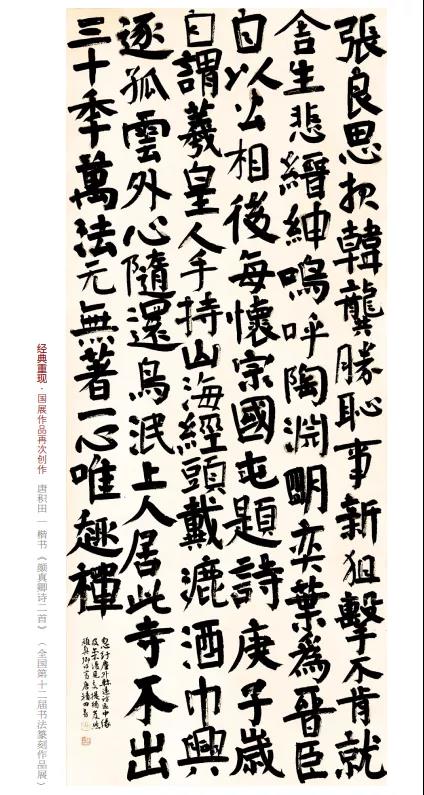 張良思报韓龔勝恥事新狙擊不肯就
舍生悲縉紳嗚呼陶淵明奕葉為晉臣
自以公相後每懷宗國屯題詩庚子歲
自謂羲皇人手持山海經頭戴漉酒巾興
逐孤雲外心隨還鳥泯上人居此寺不出
三十季萬法元無著一心唯趣禪
经典重现·国展作品再次创作 唐积田 | 楷书《颜真卿诗二首》（全国第十二届书法篆刻作品展）